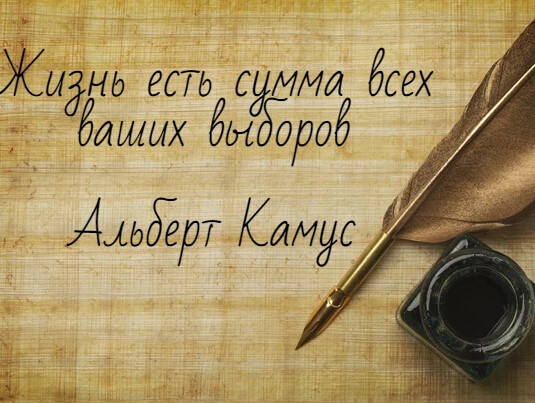 Жизнь есть сумма всех
ваших выборов
Альберт Камус